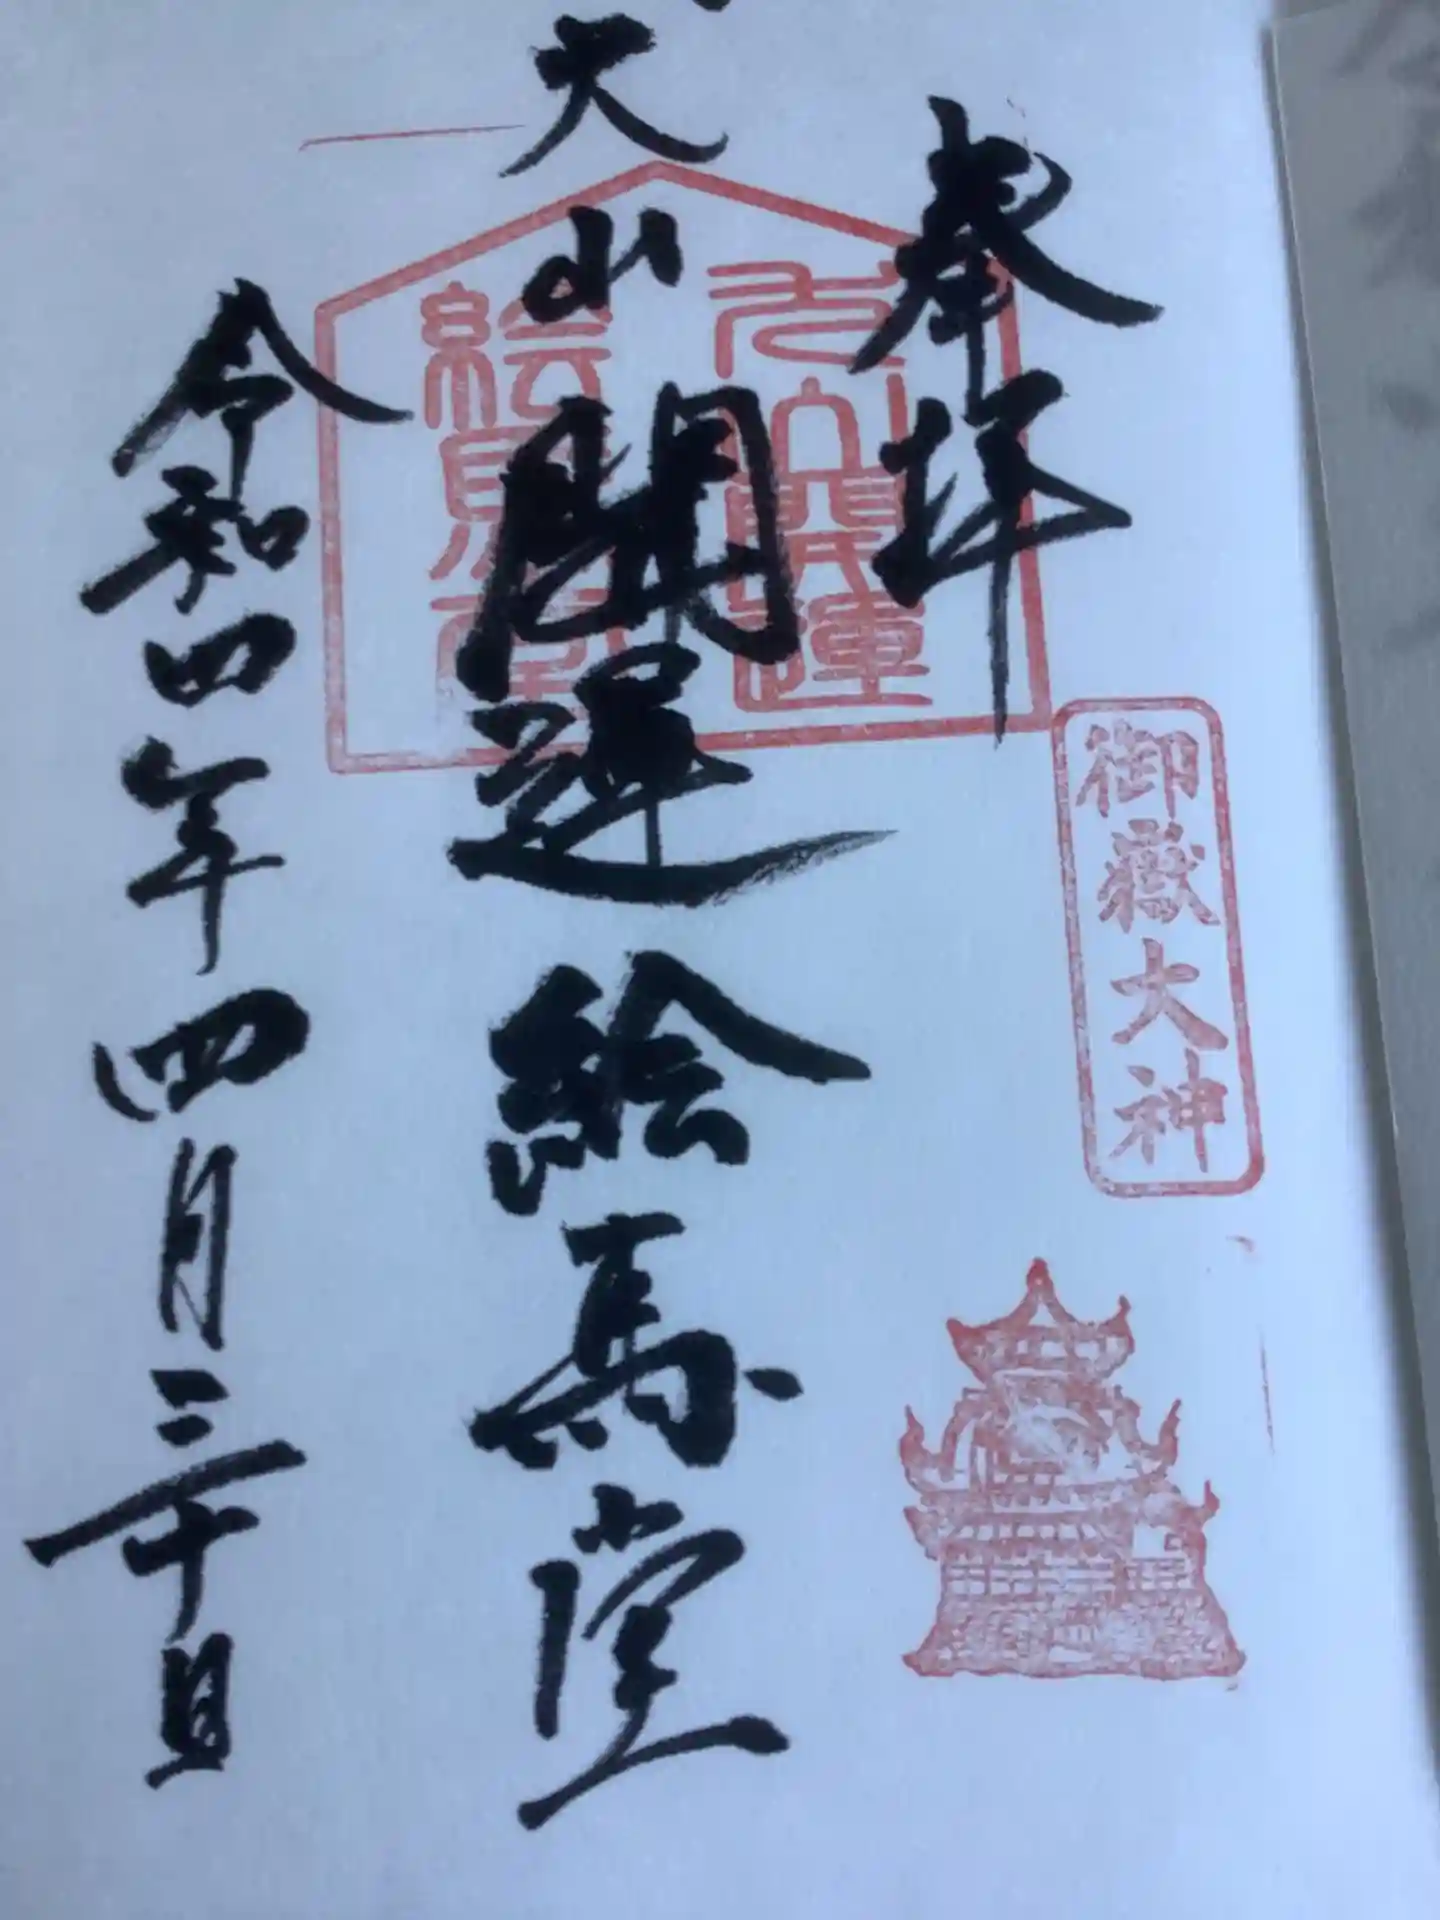 奉拝
御嶽大神
犬山開運
絵馬堂
犬山開運絵馬堂
令和四年四月三十日